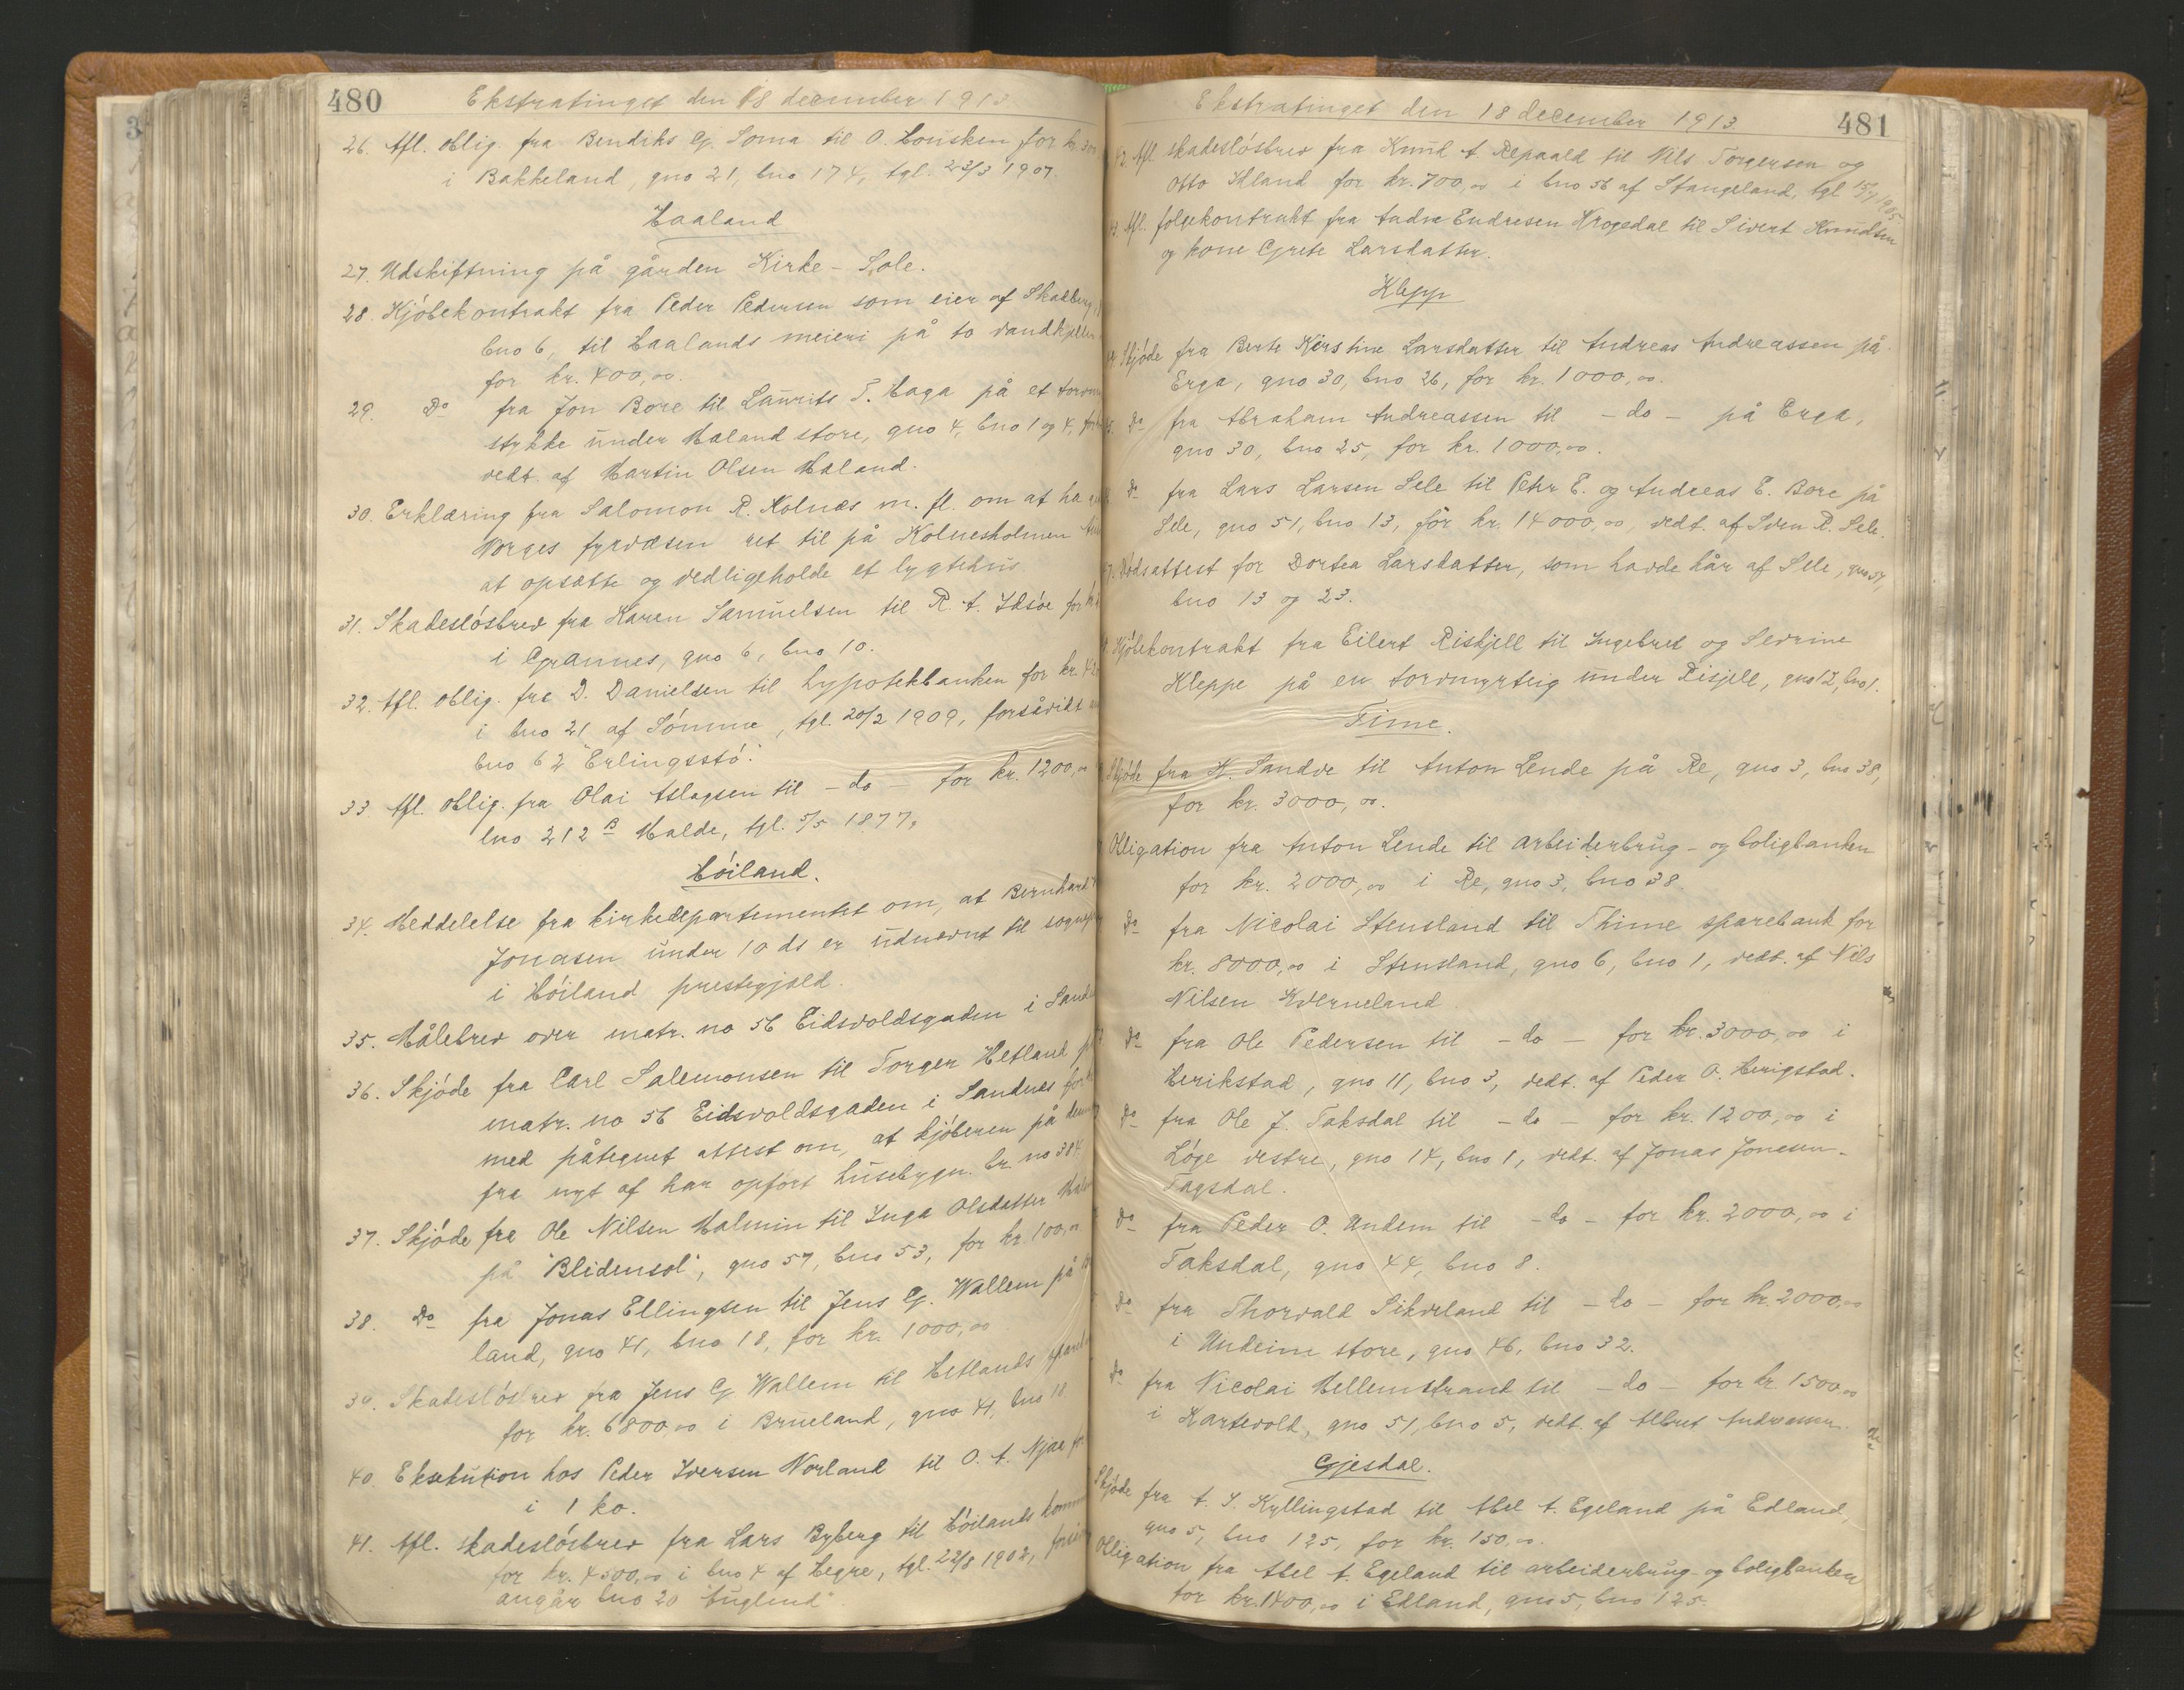 480
Ekstratinget den 18 december 1913
26. Afl. oblig. fra Bendiks G. Soma til O. Lousken for kr.
i Bakkeland, gno 21, bno 174, tgl. 23/3 1907.
Haaland
27. Udskiftning på gården Kirke-Sole.
28. Kjøbekontrakt fra Peder Pedersen som eier af Skadberg,
bno 6, til Haalands meieri på to vandkjelder
for kr. 400,00.
29. Do fra Jon Bore til Laurits T. Haga på et
stykke under Haland store, gno 4, bno 1 og 4,
vedt. af Martin Olsen Haland.
30. Erklæring fra Salomon R. Kolnes m. fl. om at ha
Norges fyrvæsen ret til på Kolnesholmen
at opsætte og vedligeholde et lygtehus.
31. Skadesløsbrev fra Karen Samuelsen til R. A. Idsøe for
i Grannes, gno 6, bno 10.
32. Afl. oblig. fra D. Danielsen til hypotekbanken for kr.
i bno 21 af Sømme, tgl. 20/2 1909, forsåvidt
bno 62 "Erlingsstø".
33. Afl. oblig. fra Olai Aslagsen til - do - for kr. 1200,00
bno 212 B Malde, tgl. 5/5 1877.
Høiland.
34. Meddelelse fra kirkedepartementet om, at Bernhard
Jonasen under 10 ds er udnævnt til
i Høiland prestegjæld.
35. Målebrev over matr. no 56 Eidsvoldsgaden i
36. Skjøde fra Carl Salemonsen til Torger Hetland på
matr. no 56 Eidsvoldsgaden i Sandnes for
med påtegnet attest om, at kjøberen på
fra nyt af har opført husebygn. br. no 384.
37. Skjøde fra Ole Nilsen Malmin til Inga Olsdatter
på "Blidensol", gno 57, bno 53, for kr. 100,00
38. Do fra Jonas Ellingsen til Jens G. Wallem på
land, gno 41, bno 18, for kr. 1000,00
39. Skadesløsbrev fra Jens G. Wallem til Hetlands
for kr. 6800,00 i Brueland, gno 41, bno 18
40. Eksekution hos Peder Iversen Norland til O. A. Njaa for
i 1 ko.
41. Afl. skadesløsbrev fra Lars Byberg til Høilands
for kr. 4500,00 i bno 4 af Hegre, tgl. 22/8 1902,
angår bno 20 "Fuglend".
481
Ekstratinget den 18 december 1913.
Afl. skadesløsbrev fra Knud A. Repaald til Nils Torgersen og
Otto Ihland for kr. 700,00 i bno 56 af Stangeland, tgl
Afl. følgekontrakt fra Andre Endresen Krogedal til Sivert Knudsen
og kone Grete Larsdatter.
Klepp
Skjøde fra Berte Kirstine Larsdatter til Andreas Andreassen på
Erga, gno 30, bno 26, for kr. 1000,00.
Do fra Abraham Andreassen til - do - på Erga,
gno 30, bno 25, for kr. 1000,00.
do fra Lars Larsen Sele til Pehr E. og Andreas E. Bore på
Sele, gno 51, bno 13, for kr. 14000,00, vedt. af Sven R. Sele.
Dødsattest for Dortea Larsdatter, som havde kår af Sele,
bno 13 og 23.
Kjøbekontrakt fra Eilert Riskjell til Ingebret og Sevrine
Kleppe på en torvmyrteig under Risjell, gno 12, bno 1.
Time.
Skjøde fra H. Sandve til Anton Lende på Re, gno 3, bno 38,
for kr. 3000,00.
Obligation fra Anton Lende til arbeiderbrug- og boligbanken
for kr. 2000,00 i Re, gno 3, bno 38.
Do fra Nicolai Stensland til Thime sparebank for
kr. 8000,00 i Stensland, gno 6, bno 1, vedt. af Nils
Nilsen Kverneland.
Do fra Ole Pedersen til - do - for kr. 3000,00 i
Herikstad, gno 11, bno 3, vedt. af Peder O. Herigstad.
Do fra Ole J. Taksdal til - do - for kr. 1200,00 i
Løge vestre, gno 14, bno 1, vedt. af Jonas Jonesen
Tagsdal.
Do fra Peder O. Undem til - do - for kr. 2000,00 i
Taksdal, gno 44, bno 8.
Do fra Thorvald Sikveland til - do - for kr. 2000,00
i Undeim store, gno 46, bno 32.
Do fra Nicolai Mellemstrand til - do - for kr. 1500,00
i Kartevold, gno 51, bno 5, vedt. af Albret Andreassen.
Gjesdal.
Skjøde fra A. S. Kyllingstad til Abel A. Egeland på Edland,
gno 5, bno 125, for kr. 150,00.
Obligation fra Abel A. Egeland til arbeiderbrug- og boligbanken
for kr. 1400,00 i Edland, gno 5, bno 125.